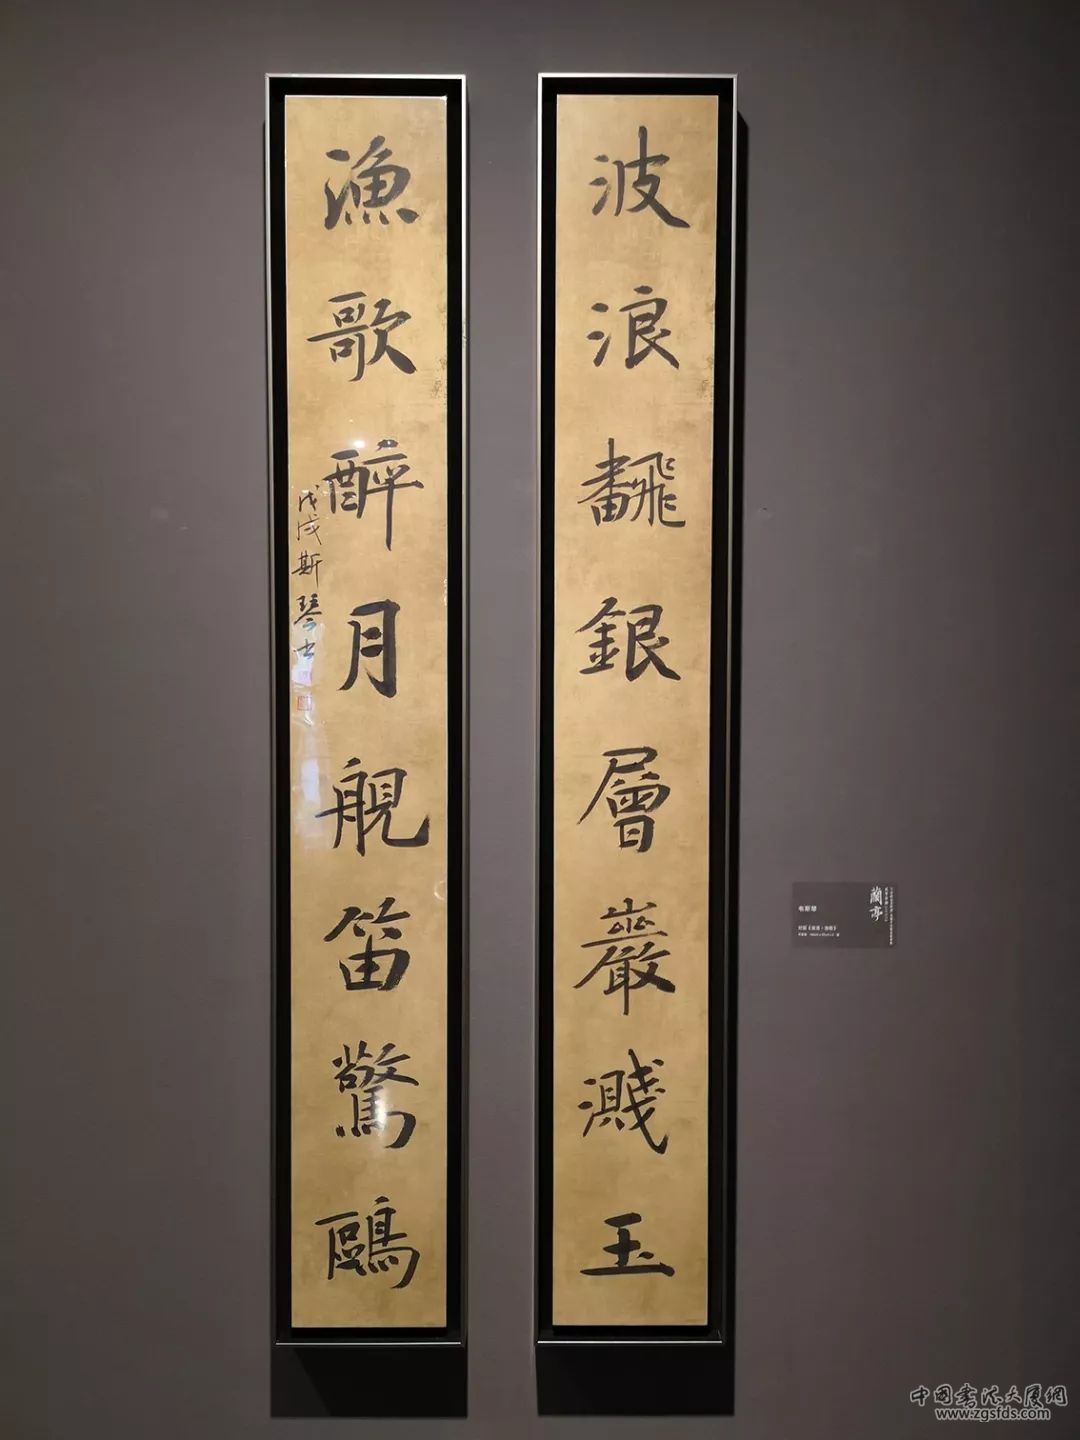 波浪飜銀層巖濺玉
漁歌醉月舰笛驚鷗
戊戌斯琴书
蘭亭
韦斯琴
中国书法大厦网
www.zgsfds.com